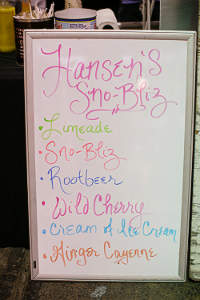 Hansen's
Sno-Bliz
• Limeade
• Sno-Bliz
• Rootbeer
• Wild Cherry
• Cream of Ice Cream
• Ginger Cayenne